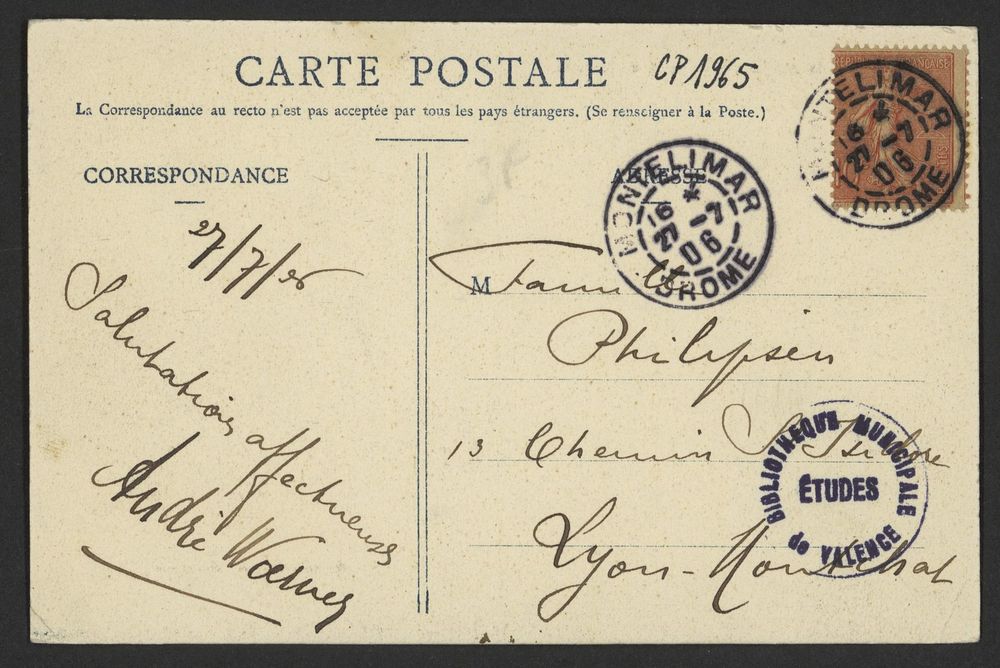 CARTE POSTALE
CP1965
La Correspondance au recto n'est pas acceptée par tous les pays étrangers. (Se renseigner à la Poste.)
CORRESPONDANCE
ADRESSE
RÉPUBLIQUE FRANÇAISE
MONTELIMAR
16 *
27 -7
06
DROME
MONTELIMAR
16 *
27 -7
06
DROME
27/7/06
Salutations affectueuses
André
M Famille
Philipsen
13 Chemin St Isidore
Lyon-Montchat
BIBLIOTHEQUE MUNICIPALE
ÉTUDES
de VALENCE